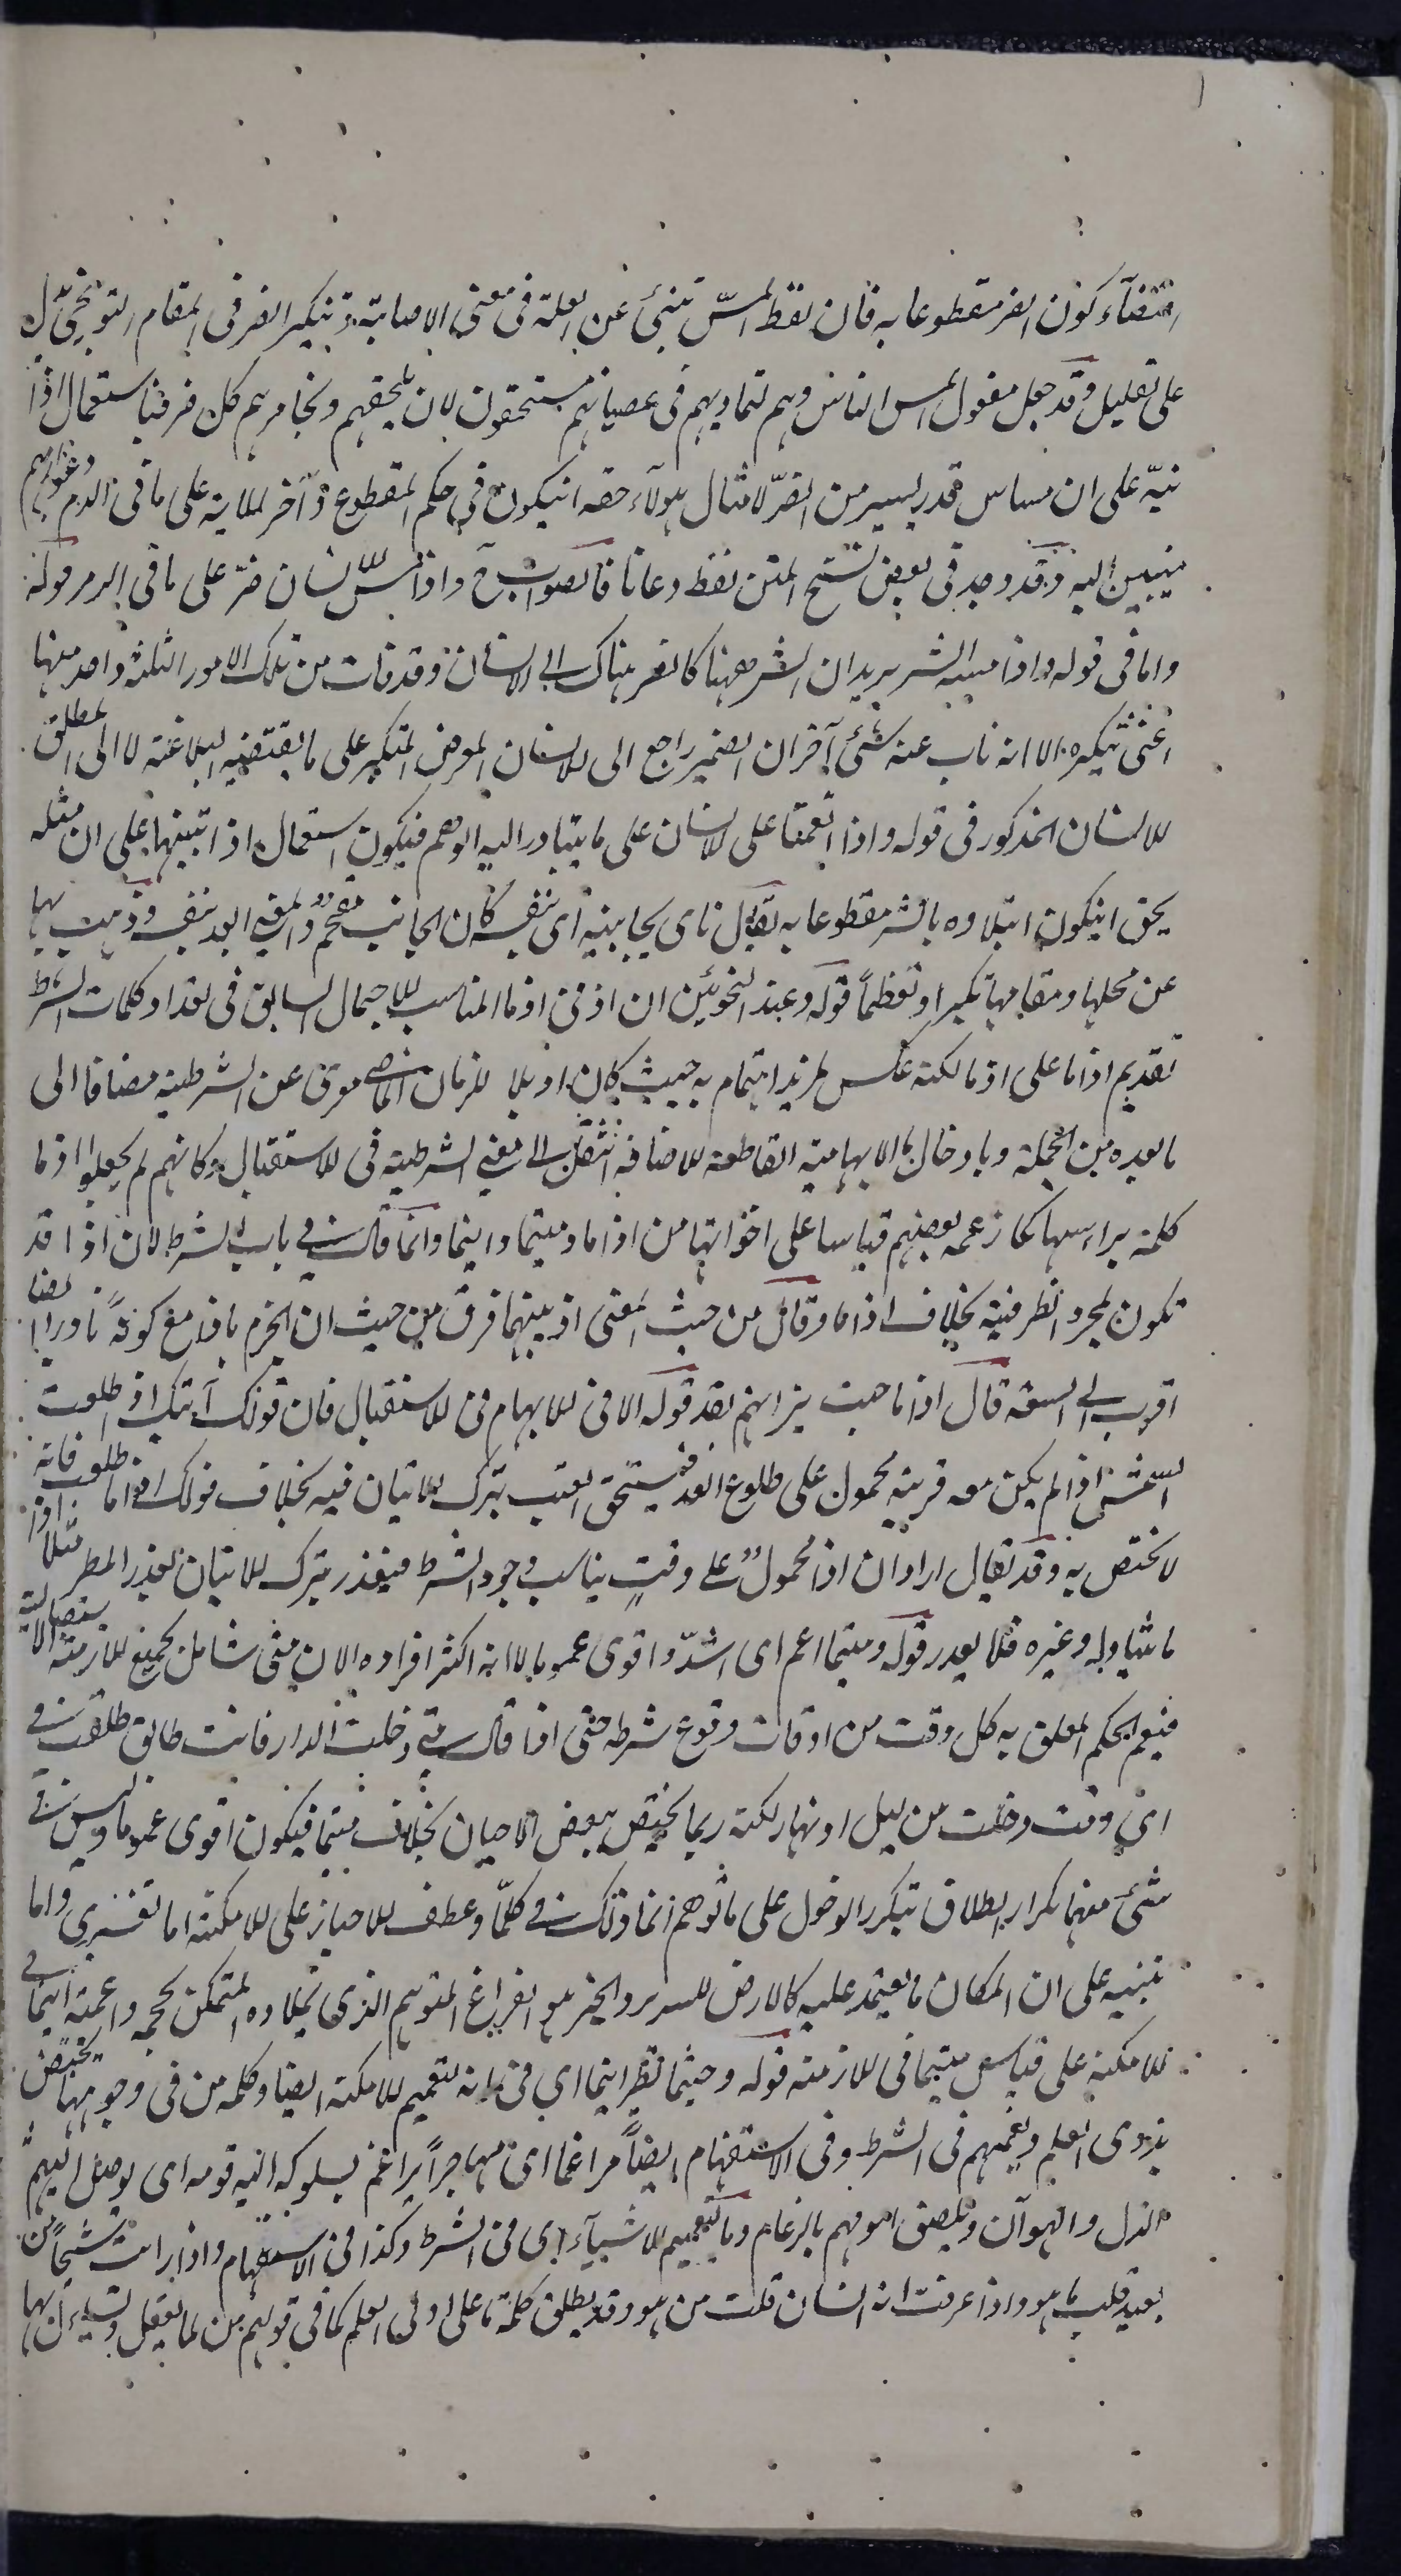 اقتضآء كون الضر مقطوعا به فان لفظ المسّ ينبئ عن القلة فى معنى الاصابة وتنكير الضر فى المقام التوبيخىّ يدل
على تقليل وقد جعل مفعول المس الناس وهم لتماديهم فى عصيانهم مستحقون لان يلحقهم ويخامرهم كل ضر فباستعمال اذا
نبّه على ان مساس قدر يسير من الضرّ لامثال هولآء حقه انيكون فى حكم المقطوع وآخر الاية على ما فى الروم دعوا ربهم
منيبين اليه وقد وجد فى بعض نسخ المتن لفظ دعانا فالصواب ح واذا مسّ الانسان ضر على ما فى الزمر قوله
واما فى قوله واذا مسه الشر يريد ان الشر ههنا كالضر هناك الى الانسان وقد فات من تلك الامور الثلثة واحد منها
اعنى تنكيره الا انه ناب عنه شئ آخر ان الضمير راجع الى الانسان المعرض المتكبر على ما يقتضيه البلاغة لا الى المطلق
الانسان المذكور فى قوله واذا انعمنا على الانسان على ما يتبادر اليه الوهم فيكون استعمال اذا تنبيها على ان مثله
يحق انيكون ابتلاوه بالشر مقطوعا به يقال ناى بجانبه اى بنفسه كان الجانب مقحم والمعنى ابعد بنفسه وذهب بها
عن محلها ومقامها تكبرا وتعظما قوله وعند النحويين ان اذ فى اذ ما المناسب للاجمال السابق فى تعداد كلمات الشرط
تقديم اذ ما على اذا ما لكنه عكس لمزيد اهتمام به حيث كان اذ بلا ما للزمان الماضى معرى عن الشرطية مضافا الى
ما بعده من الجملة وبادخال ما الابهامية القاطعة للاضافة انتقل الى معنى الشرطية فى الاستقبال وكانهم لم يجعلوا اذ ما
كلمة براسها كما زعمه بعضهم قياسا على اخواتها من اذا ما ومتيما واينما وانما قال فى باب الشرط لان اذا قد
تكون لمجرد الظرفية بخلاف اذا ما وقال من حيث المعنى اذ بينهما فرق من حيث ان الجزم باذا مع كونه نادرا ايضا
اقرب الى السعة قال اذا ما خبت نيرانهم تقد قوله الا فى الابهام فى الاستقبال فان قولك آتيك اذا طلعت
الشمس اذا لم يكن معه قرينة محمول على طلوع الغد فيستحق العتب بترك الاتيان فيه بخلاف قولك اذا ما طلعت فانه
لا يختص به وقد يقال اراد ان اذا محمول على وقت يناسب وجود الشرط فيعذر بترك الاتيان لعذر المطر مثلا واذا
ما يتناوله وغيره فلا يعذر قوله ومتيما اعم اى اشدّ واقوى عموما لا انه اكثر افراده لان متى شامل لجميع الازمنة
فيعم الحكم المعلق به كل وقت من اوقات وقوع شرطه حتى اذا قال متى دخلت الدار فانت طالق طلقت فى
اى وقت دخلت من ليل او نهار لكنه ربما يختص ببعض الاحيان بخلاف متيما فيكون اقوى عموما وليس فى
شئ منهما تكرار الطلاق بتكرر الدخول على ما توهم انما ذلك فى كلّما وعطف الاحياز على الامكنة اما تفسيرى واما
تنبيه على ان المكان ما يعتمد عليه كالارض للسرير والحيز هو الفراغ المتوهم الذى يملاوه المتمكن بحجمه واعمية اينما فى
الامكنة على قياس متيما فى الازمنة قوله وحيثما نظير اينما اى فى انه لتعميم الامكنة ايضا وكلمة من فى وجوهها تختص
بذوى العلم وتعميهم فى الشرط وفى الاستفهام ايضاً مراغما اى مهاجراً يراغم بسلوكه اليه قومه اى يوصل اليهم
الذل والهوآن ويلصق انوفهم بالرغام وما لتعميم الاشيآء اى فى الشرط وكذا فى الاستفهام واذا رايت شبحاً من
بعيد قلت ما هو واذا عرفت انه انسان قلت من هو وقد يطلق كلمة ما على اولى العلم كما فى قولهم من لما يعقل